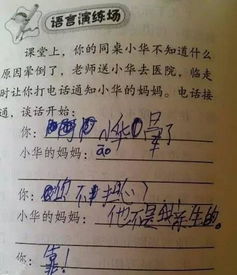 语言演练场
课堂上，你的同桌小华不知道什么
原因晕倒了，老师送小华去医院，临走
时让你打电话通知小华的妈妈。电话接
通，谈话开始：
你：啊啊啊小华晕了
小华的妈妈：āo
你：你不担心？
小华的妈妈：他不是我亲生的。
你：靠！